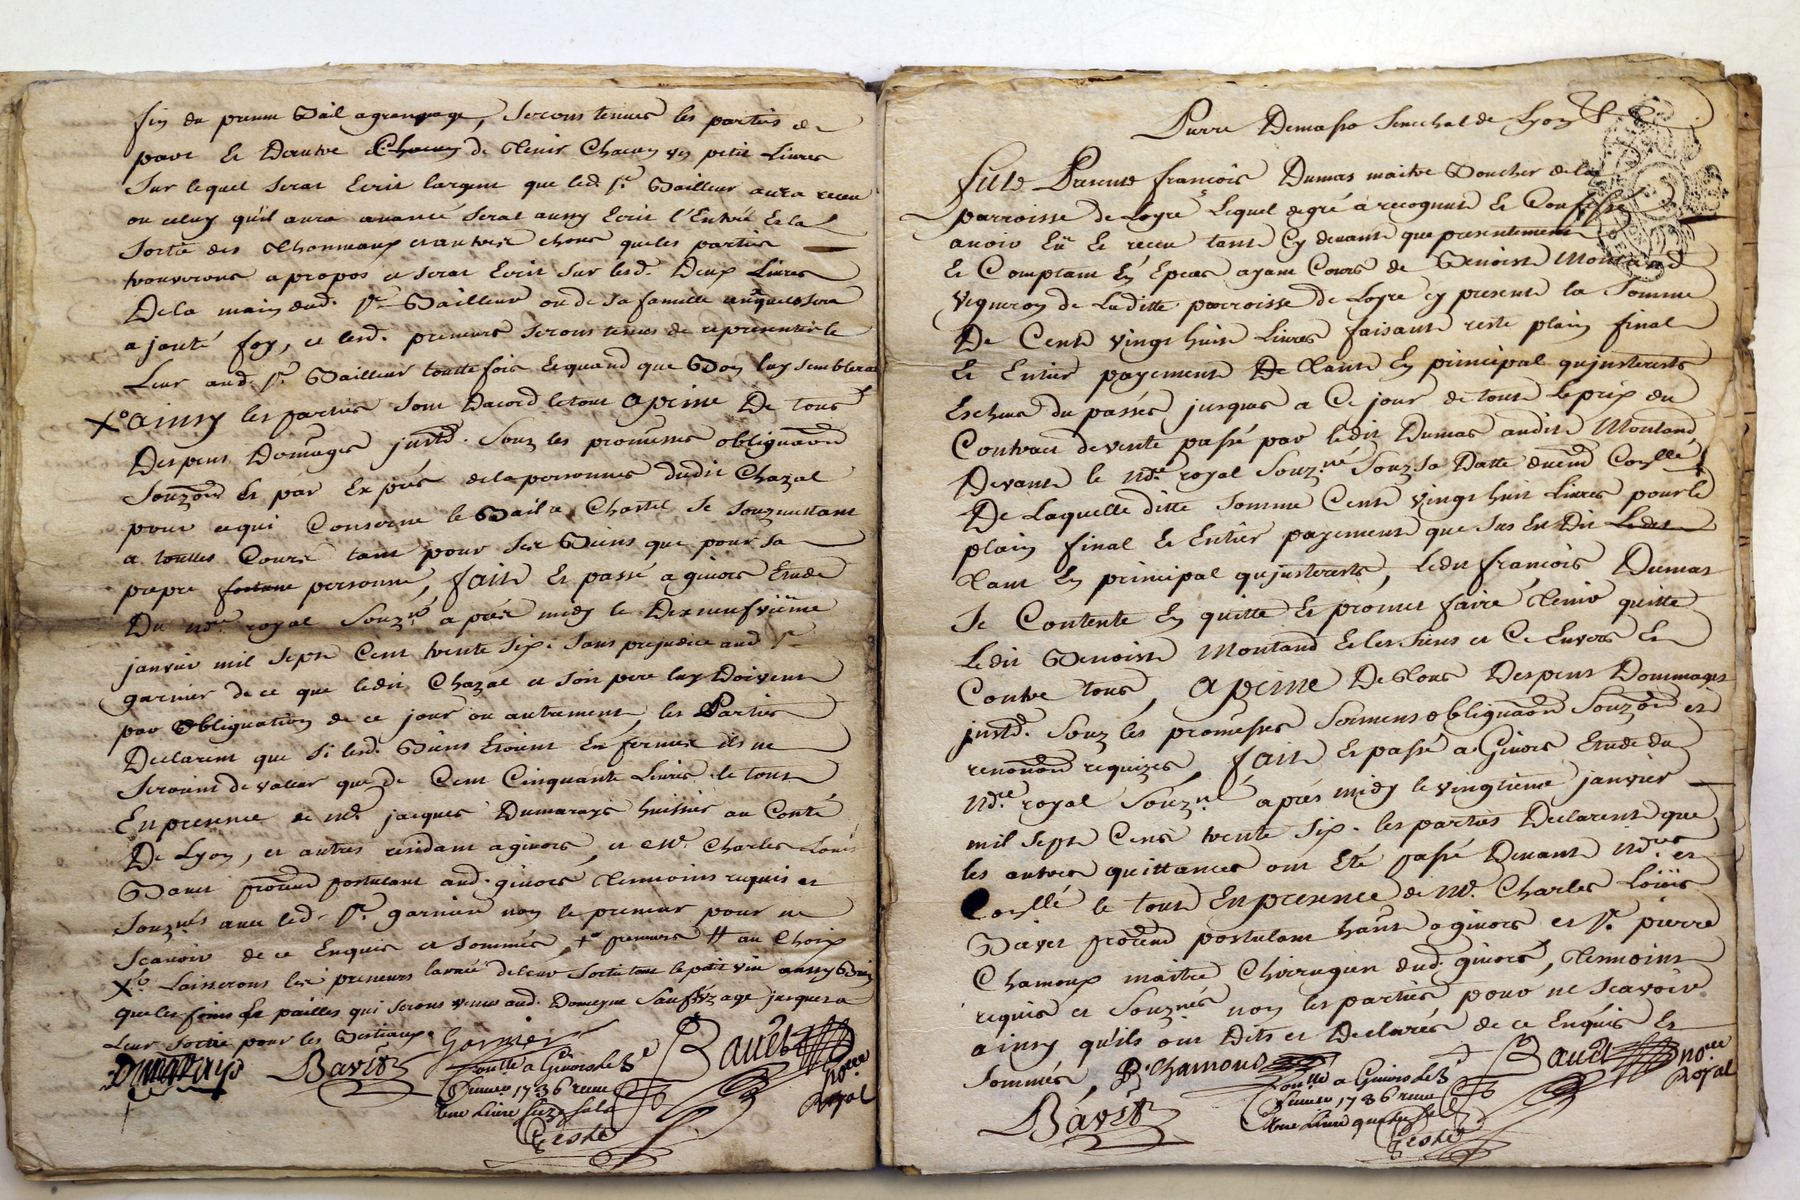 fin du present Bail a grangeage, seront tenues les parties de
part et Dautre de Tenir Chacun un petit Livre
Sur lequel serat Ecrit largent que led. Sr. Bailleur aura receu
ou celuy qu'il aura avancé serat aussy Ecrit l'Entrée Et la
Sortie des et autres choses que les parties
trouveront a propos et serat Ecrit sur lesd. Deux Livres
De la main dud. Sr. Bailleur ou de sa famille auxquels sera
ajouté foy, et lesd. preneurs seront tenus de representer le
Leur aud. Sr. Bailleur toutte fois Et quand que Bon luy semblera
Xo ainsy les parties sont Dacord le tout a peine De tous
Despens Domages Souz les promesses obligaon
Et par Exprés de la personne dudit Chazal
pour ce qui Conserne le Bail a Chastel Se Souzmettant
a touttes Cours tant pour Ses Biens que pour sa
propre personne, fait Et passé a givors Etude
Du Nore. royal Souzné. aprés midy le Dix neufvieme
janvier mil Sept Cent trente Six. Sans prejudice aud. Sr.
garnier de ce que ledit Chazal et son pere luy Doivent
par obliguation de ce jour ou autrement, les Parties
Declarent que si lesd. Biens Etoient En fermés ils ne
Seroient de valeur que de Cent Cinquante Livres le tout
En presence de Me. jacques Dumarays huissier au Conté
De Lyon, et autres residant a givors, et Me. Charles Loüis
Bavet postulant aud. givors Temoins requis et
Souznés avec led. Sr. garnier non le preneur pour ne
Scavoir de ce Enquis et Sommés, preneurs # au Choix
Xo Laisseront les preneurs lannée de leur Sortie tant le petit vin aussy Bien
que les foins Et pailles qui seront venus aud. Domeyne jusques a
Leur Sortie pour les Bestiaux. Garnier
Dumarays Bavet Bauet
Conllé a Givors le 3e
fevrier 1736 receu
no.re Royal
une Livre
Pierre Demasso Senechal de Lyon
fut Present françois Dumas maitre Boucher de la
parroisse de Loyre Lequel de gré a recognut Et Confessé
avoir Eü Et receu tant Cy devant que presentement
Et Comptant En Especes ayant Cours de Benoist Montand
vigneron de Laditte parroisse de Loyre cy present la Somme
De Cent vingt huit Livres faisant reste plain final
Et Entier payement De Tant En principal qu'justerests
Escheus du passés jusques a Ce jour de tout Le prix du
Contract de vente passé par ledit Dumas audit Montand
Devant le Nore. royal Souzné. Souz Sa Datte Conllé
De Laquelle ditte Somme Cent vingt huit Livres pour le
plain final Et Entier payement que Sus En Dit
Tant En principal qu'justerests, ledit françois Dumas
Se Contente En quitte Et promet faire Tenir quitte
Ledit Benoist Montand Et les siens et Ce Envers Et
Contre tous, a peine De Tous Despens Dommages
Souz les promesses Sermens obliguaon et
requizes, fait Et passé a Givors Etude du
Nore royal Souzné. aprés midy le vingtieme janvier
mil Sept Cent trente Six. les parties Declarent que
les autres quittances ont Eté passé Devant Nores et
Conllé le tout En presence de Me. Charles Loüis
Bavet postulant haut a givors et Sr. pierre
Chamoux maitre Chirrugien aud. givors, Temoins
requis et Souznés non les parties pour ne Scavoir
ainsy qu'ils ont Dits et Declarés de ce Enquis Et
Sommés, P. Chamoux Bauet no.re
Royal
Bavet
Conllé a Givors le 3e
fevrier 1736 receu
une Livre